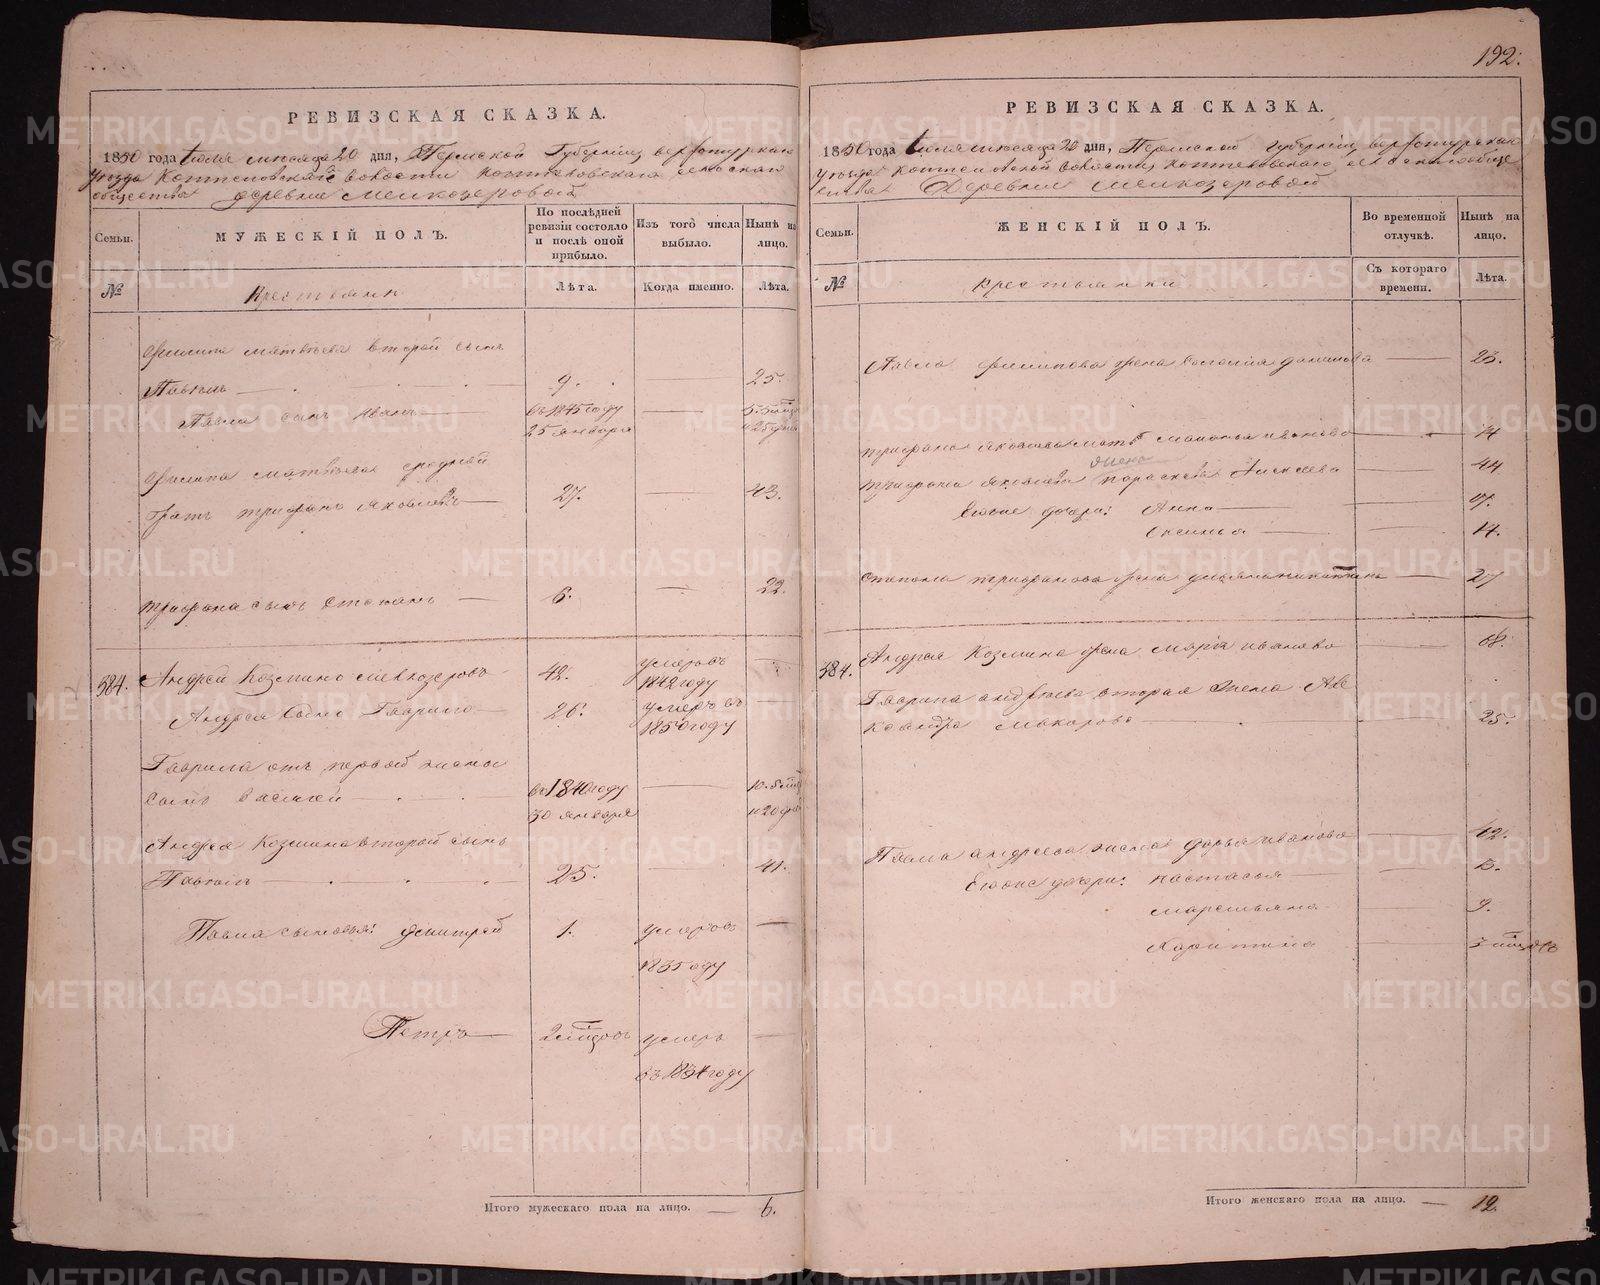 192.
РЕВИЗСКАЯ СКАЗКА.
1850 года Июля месяца 20 дня, Пермской Губернии, верхотурскаго
уезда Коптеловской волости коптеловскаго сельскаго
общества деревни Мелкозеровой
Семьи.
МУЖЕСКІЙ ПОЛЪ.
По послѣдней ревизіи состояло и послѣ оной прибыло.
Изъ того числа выбыло.
Нынѣ на лицо.
№
Крестьяне
Лѣта.
Когда именно.
Лѣта.
Филипа Матвѣева второй сынъ
Павелъ — 9. — 25.
Павла сынъ Иванъ — въ 1845 году — 5. 5 мцов
25 января и 25 дней
Филипа Матвѣева сродной
братъ Трифонъ Яковлевъ — 27. — 43.
Трифона сынъ Степанъ — 6. — 22.
384. Андрей Козмино Мелкозеровъ 42. умеръ въ —
1842 году
Андрея сыно Гаврило — 26. умеръ въ —
1850 году
Гаврила отъ первой жены
сынъ Василей — въ 1840 году — 10. 5 мцов
30 января и 20 дней
Андрея Козмина второй сынъ
Павелъ — 25. — 41.
Павла сыновья: Дмитрей 1. умеръ въ —
1835 году
Петръ — 2 мцовъ умеръ —
въ 1834 году
Итого мужескаго пола на лицо. — 6.
РЕВИЗСКАЯ СКАЗКА.
1850 года Июля месяца 20 дня, Пермской губерніи, верхотурскаго
уезда Коптеловской волости, Коптеловскаго сельскаго обще
ства Деревни Мелкозеровой
Семьи.
ЖЕНСКІЙ ПОЛЪ.
Во временной отлучкѣ.
Нынѣ на лицо.
№
Крестьянки
Съ котораго времени.
Лѣта.
Павла Филипова жена данилова — 23.
Трифона Яковлева мать иванова —
жена
Трифона Яковлева Параскева Алексеева — 44
Евоные дочери: Анна — 17.
Оксинья — 14.
Степана Трифонова жена — 27
384. Андрея Козмина жена Марья иванова — 68.
Гаврила андреева вторая жена Але
ксандра Макарова — 25.
Павла андреева жена Дарья иванова — 42.
Евоные дочери: Настасья — 15.
Маремьяна — 9.
— 3 мцовъ
Итого женскаго пола на лицо. — 12.
METRIKI.GASO-URAL.RU